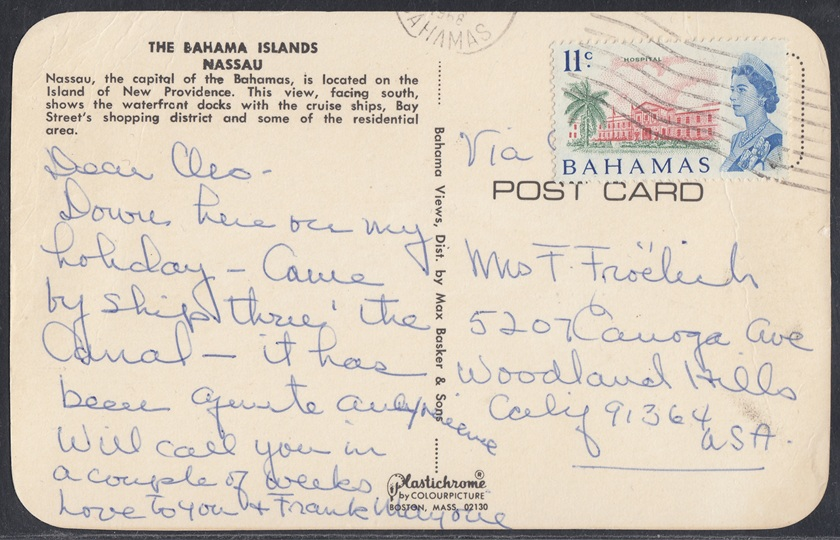 THE BAHAMA ISLANDS
NASSAU
Nassau, the capital of the Bahamas, is located on the
Island of New Providence. This view, facing south,
shows the waterfront docks with the cruise ships, Bay
Street's shopping district and some of the residential
area.
Dear Cleo-
Down here on my
holiday – Came
by ship thru' the
Canal – it has
been quite an
Will call you in
a couple of weeks
Love to you + Frank Marjorie
Bahama Views, Dist. by Max Basker & Sons
Plastichrome®
by COLOURPICTURE
BOSTON, MASS. 02130
1968
BAHAMAS
11c
HOSPITAL
BAHAMAS
Via
POST CARD
Mrs F. Fröelich
5207 Canoga Ave
Woodland Hills
Calif 91364
USA.